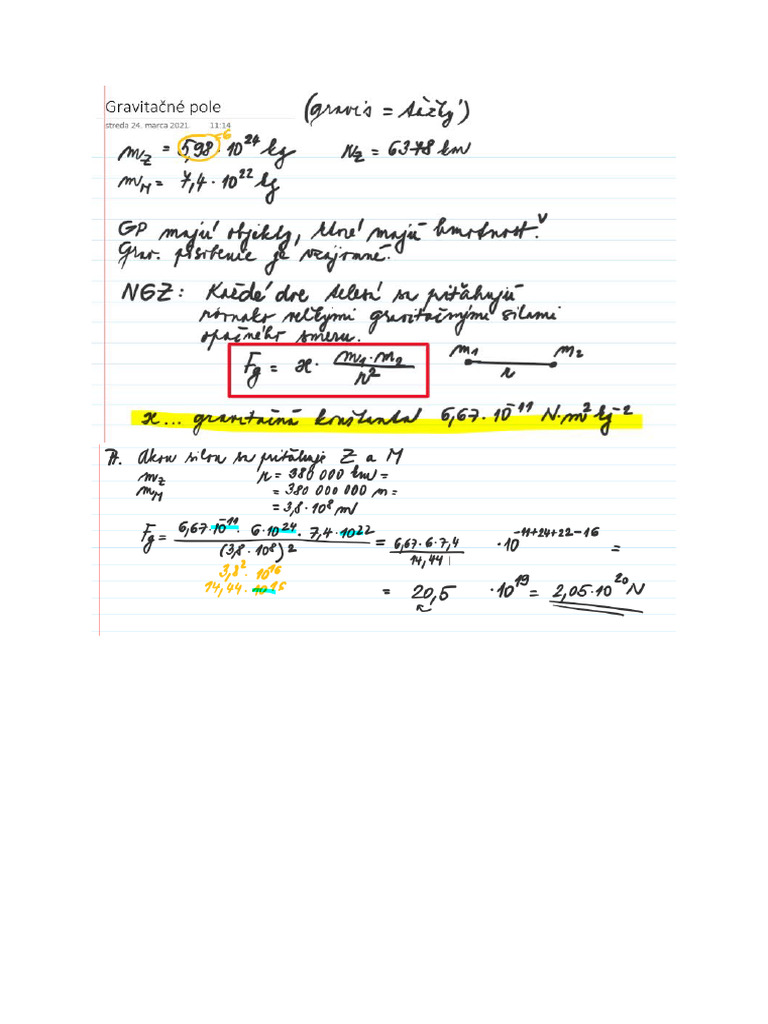 Gravitačné pole (gravis = ťažký)
streda 24. marca 2021. 11:14
m_Z = 5,98 · 10^24 kg r_Z = 6378 km
≐6
m_M = 7,4 · 10^22 kg
GP majú objekty, ktoré majú hmotnosť.
Grav. pôsobenie je vzájomné.
NGZ: Každé dve telesá sa priťahujú
rovnako veľkými gravitačnými silami
opačného smeru.
F_g = ϰ · m_1 · m_2 / r^2 m_1 m_2
r
ϰ ... gravitačná konštanta 6,67 · 10^-11 N·m^2 kg^-2
Akou silou sa priťahuje Z a M
m_Z r = 380 000 km =
m_M = 380 000 000 m =
= 3,8 · 10^8 m
F_g = 6,67 · 10^-11 · 6 · 10^24 · 7,4 · 10^22 / (3,8 · 10^8)^2 = 6,67 · 6 · 7,4 / 14,44 · 10^-11+24+22-16 =
3,8^2 · 10^16
14,44 · 10^16
= 20,5 · 10^19 = 2,05 · 10^20 N